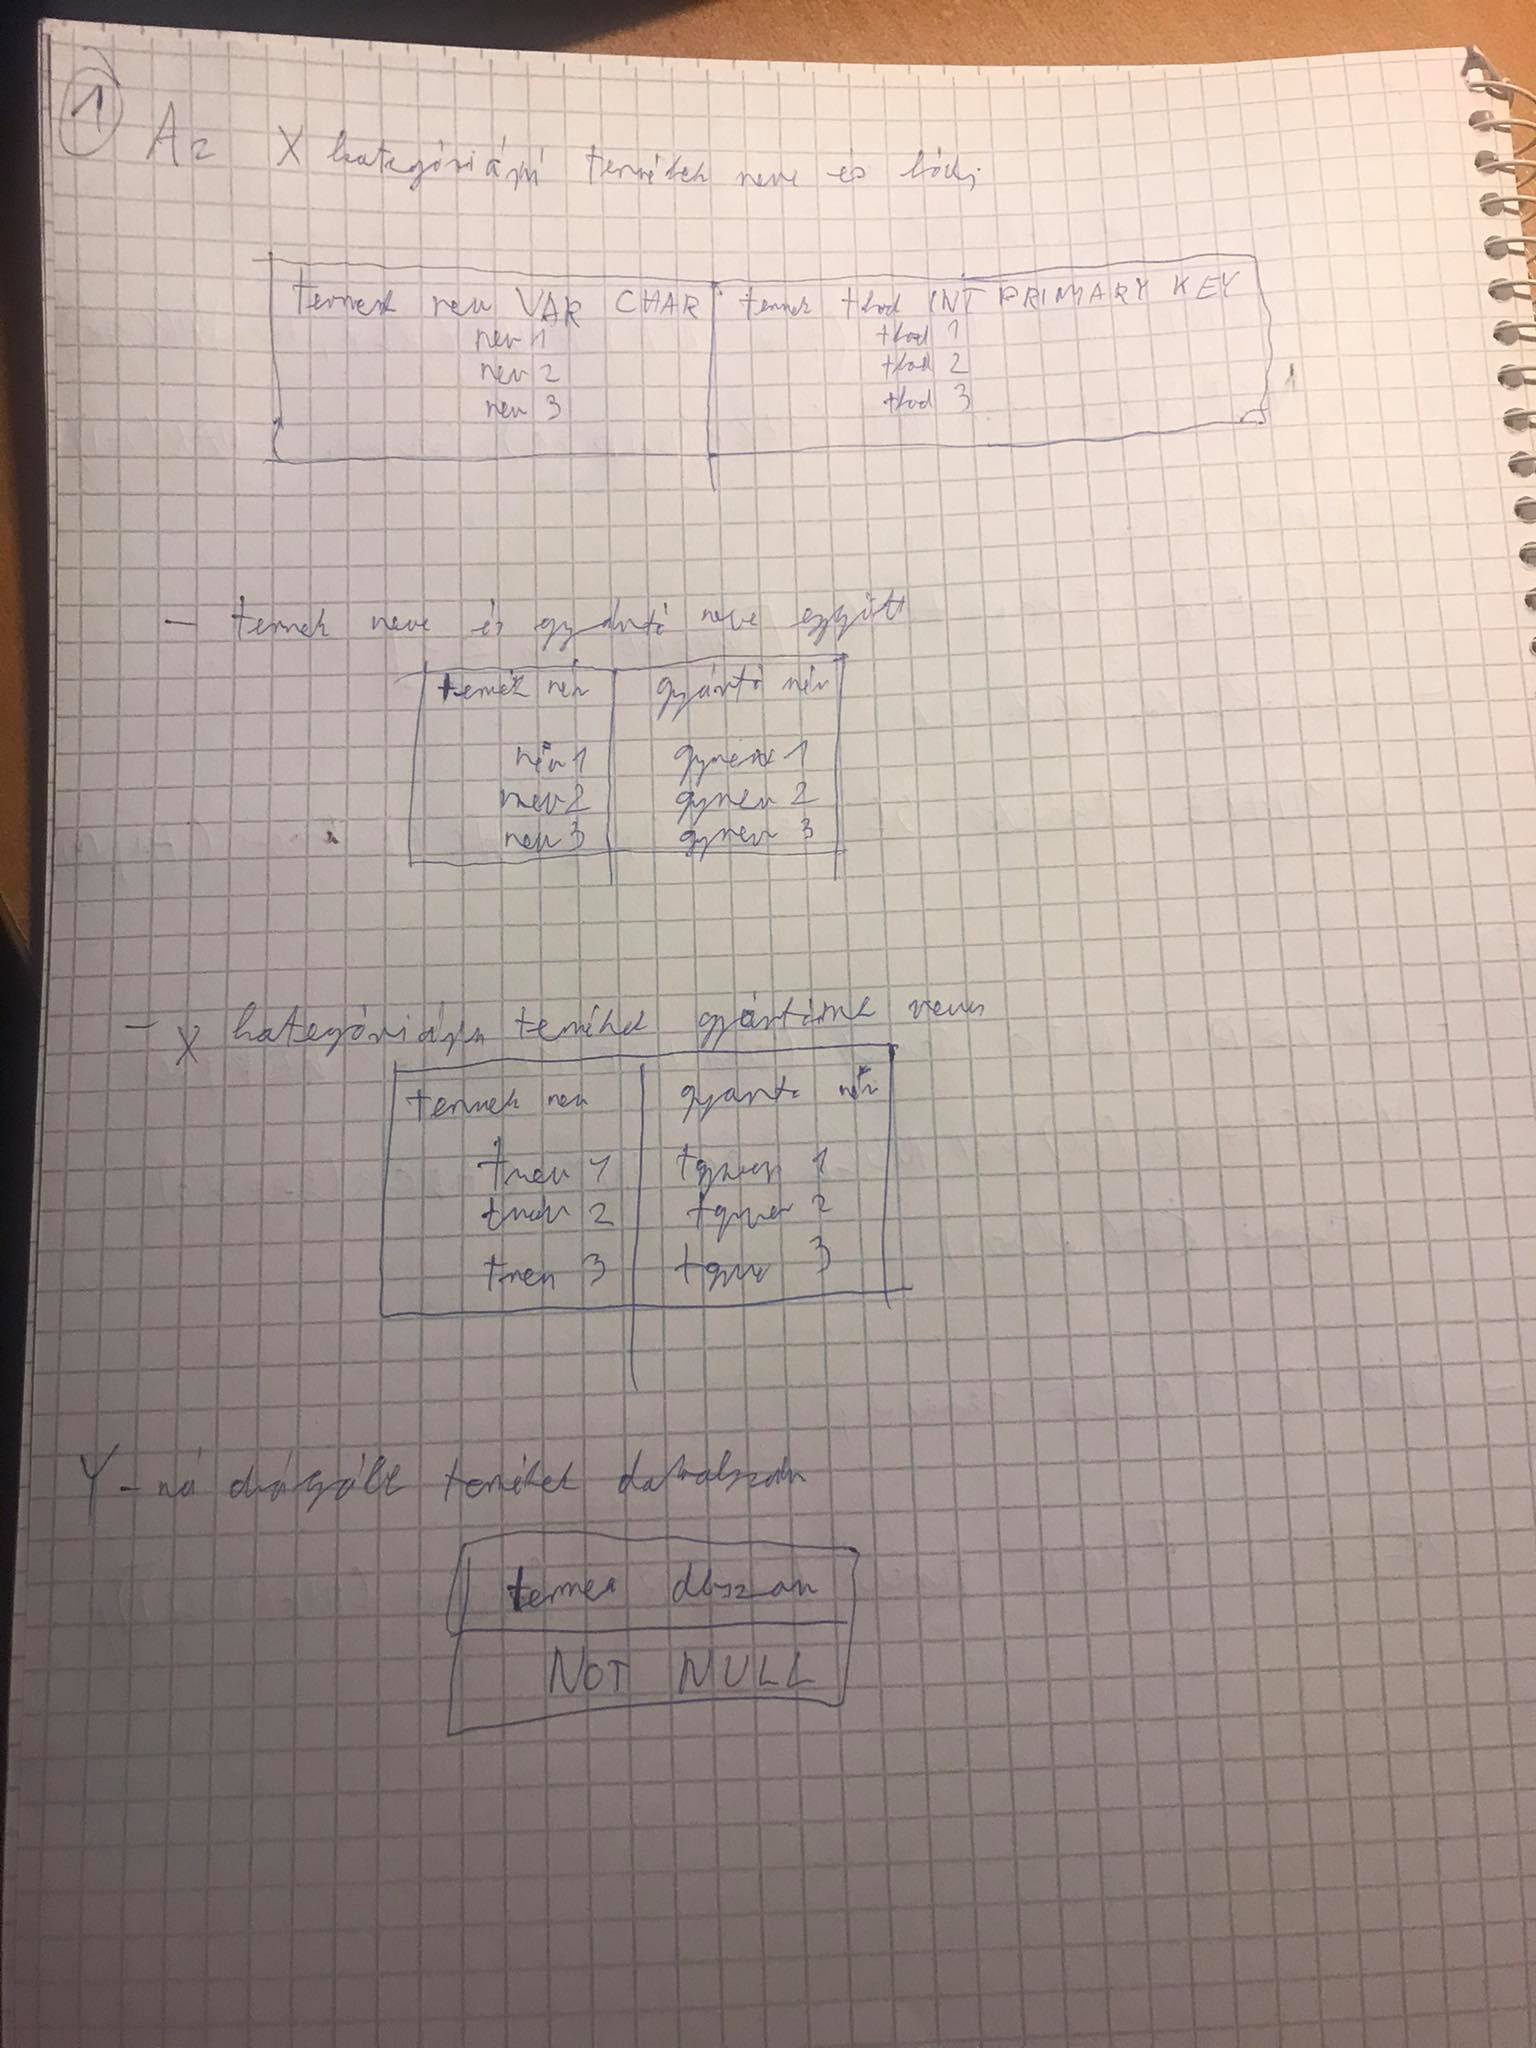 1
Az X kategóriájú termékek neve és kódja
termek nev VAR CHAR termek tkod INT PRIMARY KEY
nev 1 tkod 1
nev 2 tkod 2
nev 3 tkod 3
- termek neve és gyártó neve együtt
termék név gyártó név
név 1 gynev 1
nev 2 gynev 2
nev 3 gynev 3
- X kategóriájú termékek gyártóinak neve
termek nev gyarto név
tnev 1 tgynev 1
tnev 2 tgynev 2
tnev 3 3
Y-ná termékek darabszám
termek dbszam
NOT NULL